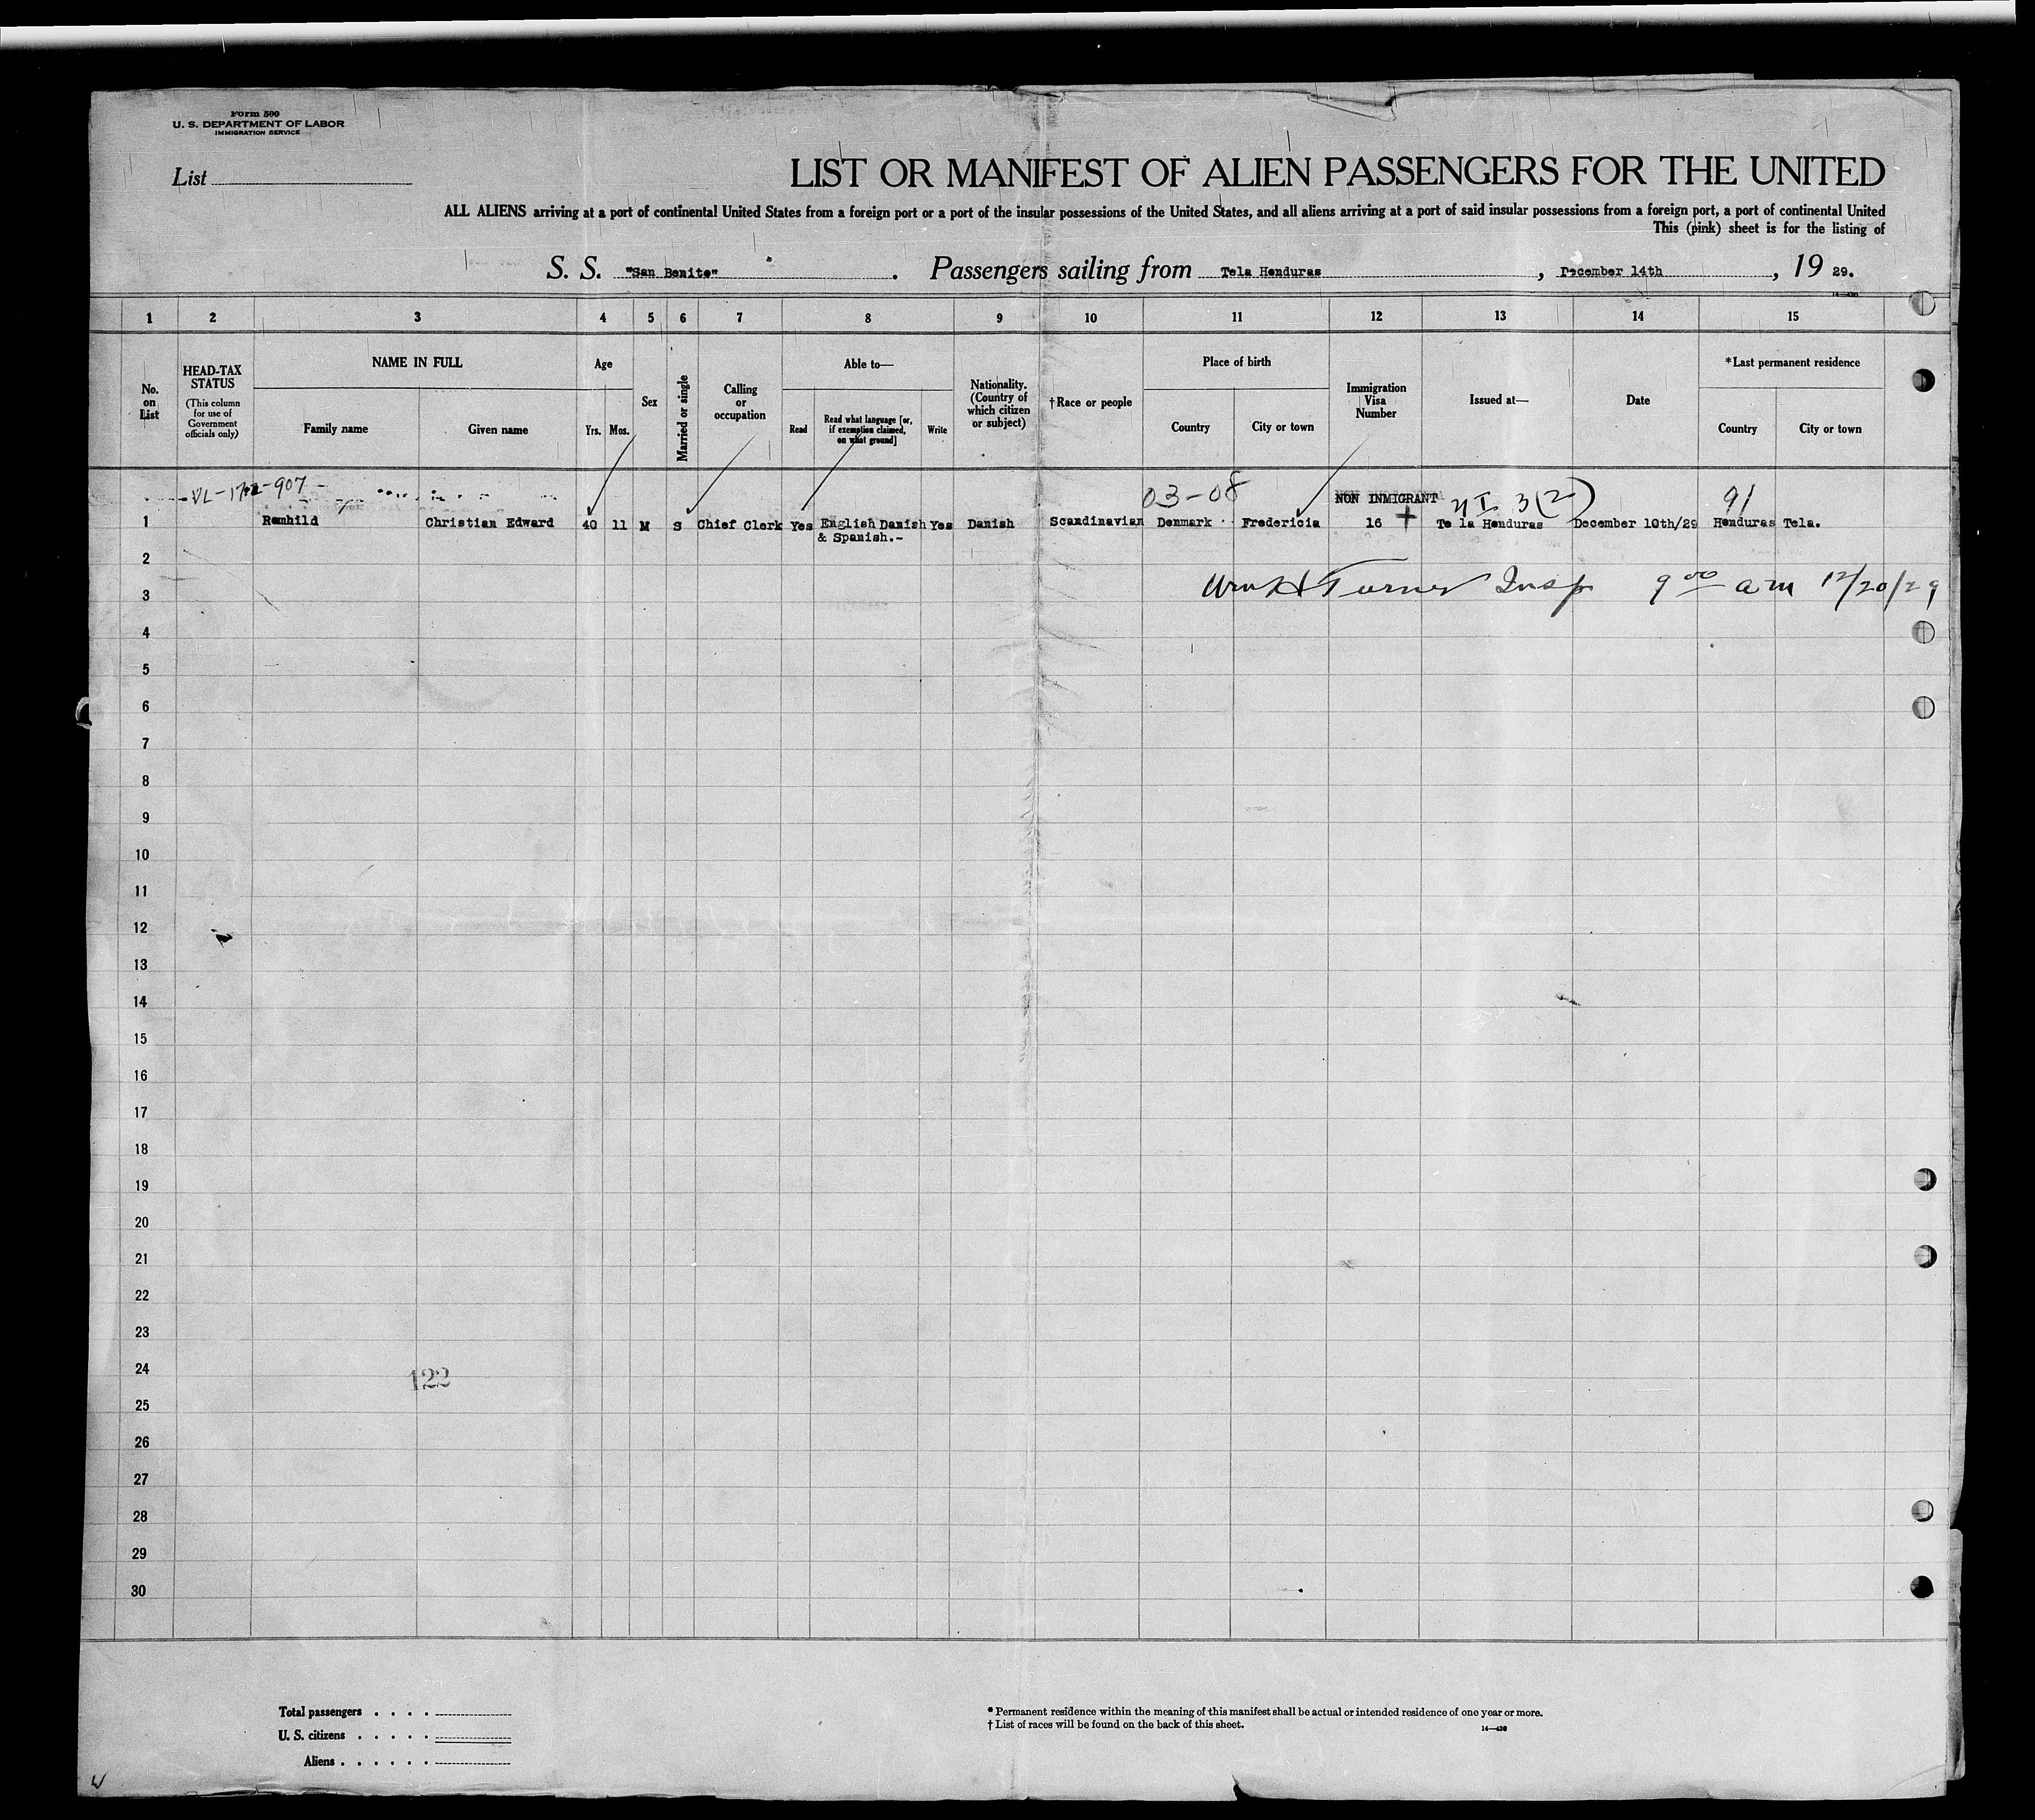 Form 500
U. S. DEPARTMENT OF LABOR
IMMIGRATION SERVICE
List
LIST OR MANIFEST OF ALIEN PASSENGERS FOR THE UNITED
ALL ALIENS arriving at a port of continental United States from a foreign port or a port of the insular possessions of the United States, and all aliens arriving at a port of said insular possessions from a foreign port, a port of continental United
This (pink) sheet is for the listing of
S. S. "San Benito". Passengers sailing from Tela Honduras, December 14th, 19 29.
1 2 3 4 5 6 7 8 9 10 11 12 13 14 15
No. on List
HEAD-TAX STATUS
(This column for use of Government officials only)
NAME IN FULL
Family name
Given name
Age
Yrs. Mos.
Sex
Married or single
Calling or occupation
Able to—
Read
Read what language [or, if exemption claimed, on what ground]
Write
Nationality. (Country of which citizen or subject)
†Race or people
Place of birth
Country
City or town
Immigration Visa Number
Issued at—
Date
*Last permanent residence
Country
City or town
03-08 NON INMIGRANT 3(2) 91
1 Remhild Christian Edward 40 11 M S Chief Clerk Yes English Danish Yes Danish Scandinavian Denmark Fredericia 16 Te la Honduras December 10th/29 Honduras Tela.
& Spanish.-
2
Wm H Turner Insp 9 00 am 12/20/29
3
4
5
6
7
8
9
10
11
12
13
14
15
16
17
18
19
20
21
22
23
24
122
25
26
27
28
29
30
Total passengers . . . .
U. S. citizens . . . . .
Aliens . . . . . .
* Permanent residence within the meaning of this manifest shall be actual or intended residence of one year or more.
† List of races will be found on the back of this sheet.
14—430